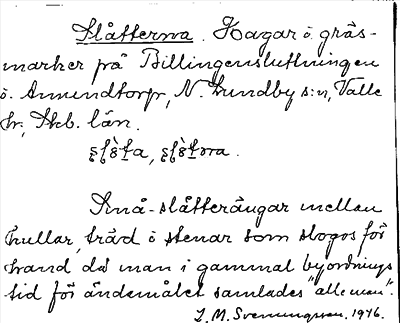 Slåtterna. Hagar ö. gräs-
marker på Billingensluttningen
ö. Amundtorp, N. Lundby s:n, Valle
hr, Skb. län.
Små-slåtterängar mellan
kullar, träd ö stenar som slogos för
hand då man i gammal byordnings
tid för ändemålet samlades "alle man".
L. M. Svenungsson. 1946.